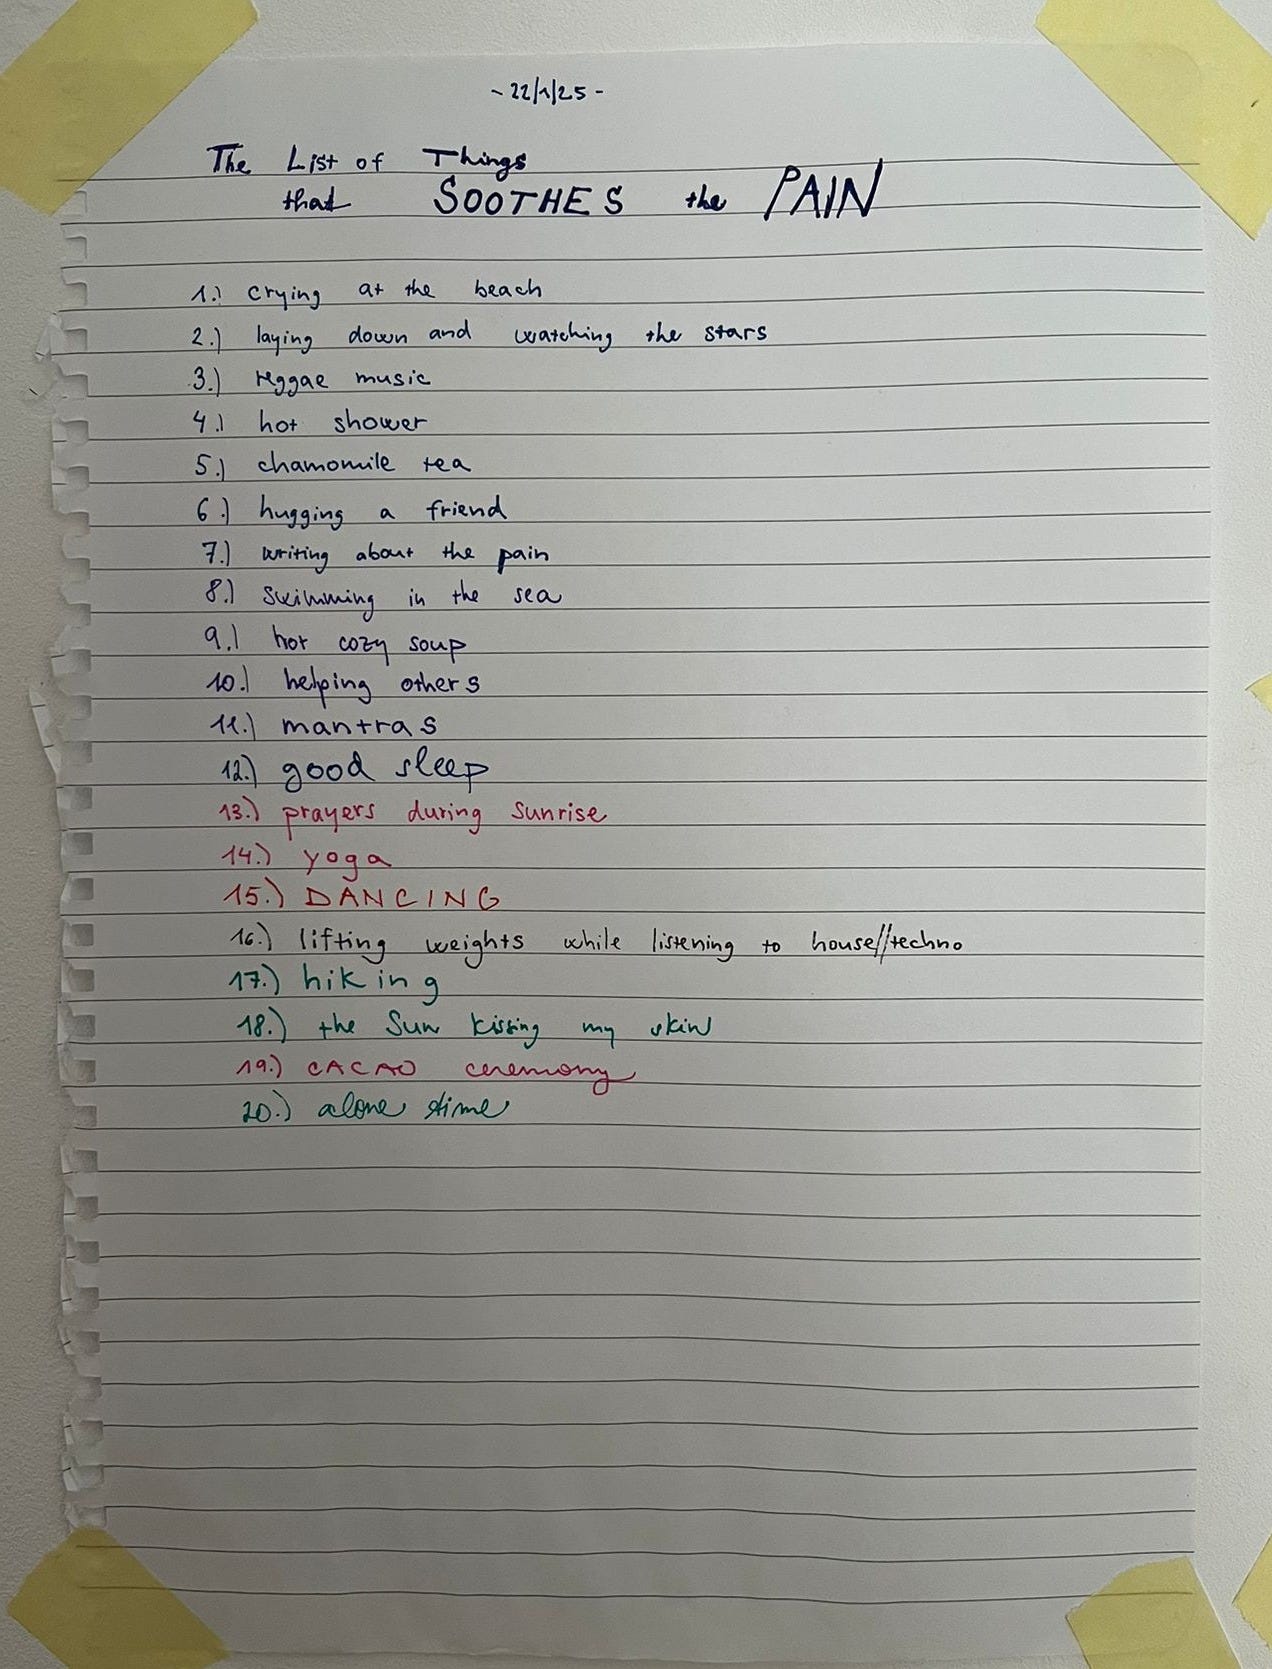 - 22/1/25 -
The List of Things
that SOOTHES the PAIN
1.) crying at the beach
2.) laying down and watching the stars
3.) reggae music
4.) hot shower
5.) chamomile tea
6.) hugging a friend
7.) writing about the pain
8.) swimming in the sea
9.) hot cozy soup
10.) helping others
11.) mantras
12.) good sleep
13.) prayers during sunrise
14.) yoga
15.) DANCING
16.) lifting weights while listening to house//techno
17.) hiking
18.) the Sun kissing my skin
19.) CACAO ceremony
20.) alone time